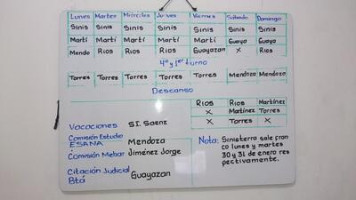 Lunes Martes Miércoles Jueves Viernes Sábado Domingo
Sinis Sinis Sinis Sinis Sinis Sinis Sinis
Martí Martí Martí Martí Martí Guayo Guayo
Mendo Rios Rios Rios Guayazan X Rios
4º y 1er turno
Torres Torres Torres Torres Torres Mendoza Mendoza
Descanso
Rios Rios Martínez
X Martínez Torres
X Torres X
Vacaciones SI. Saenz
Comisión Estudio
ESANA Mendoza
Comisión Mebar Jiménez Jorge
Citación Judicial
Btá Guayazan
Nota: Sinisterra sale fran
co lunes y martes
30 y 31 de enero res
pectivamente.